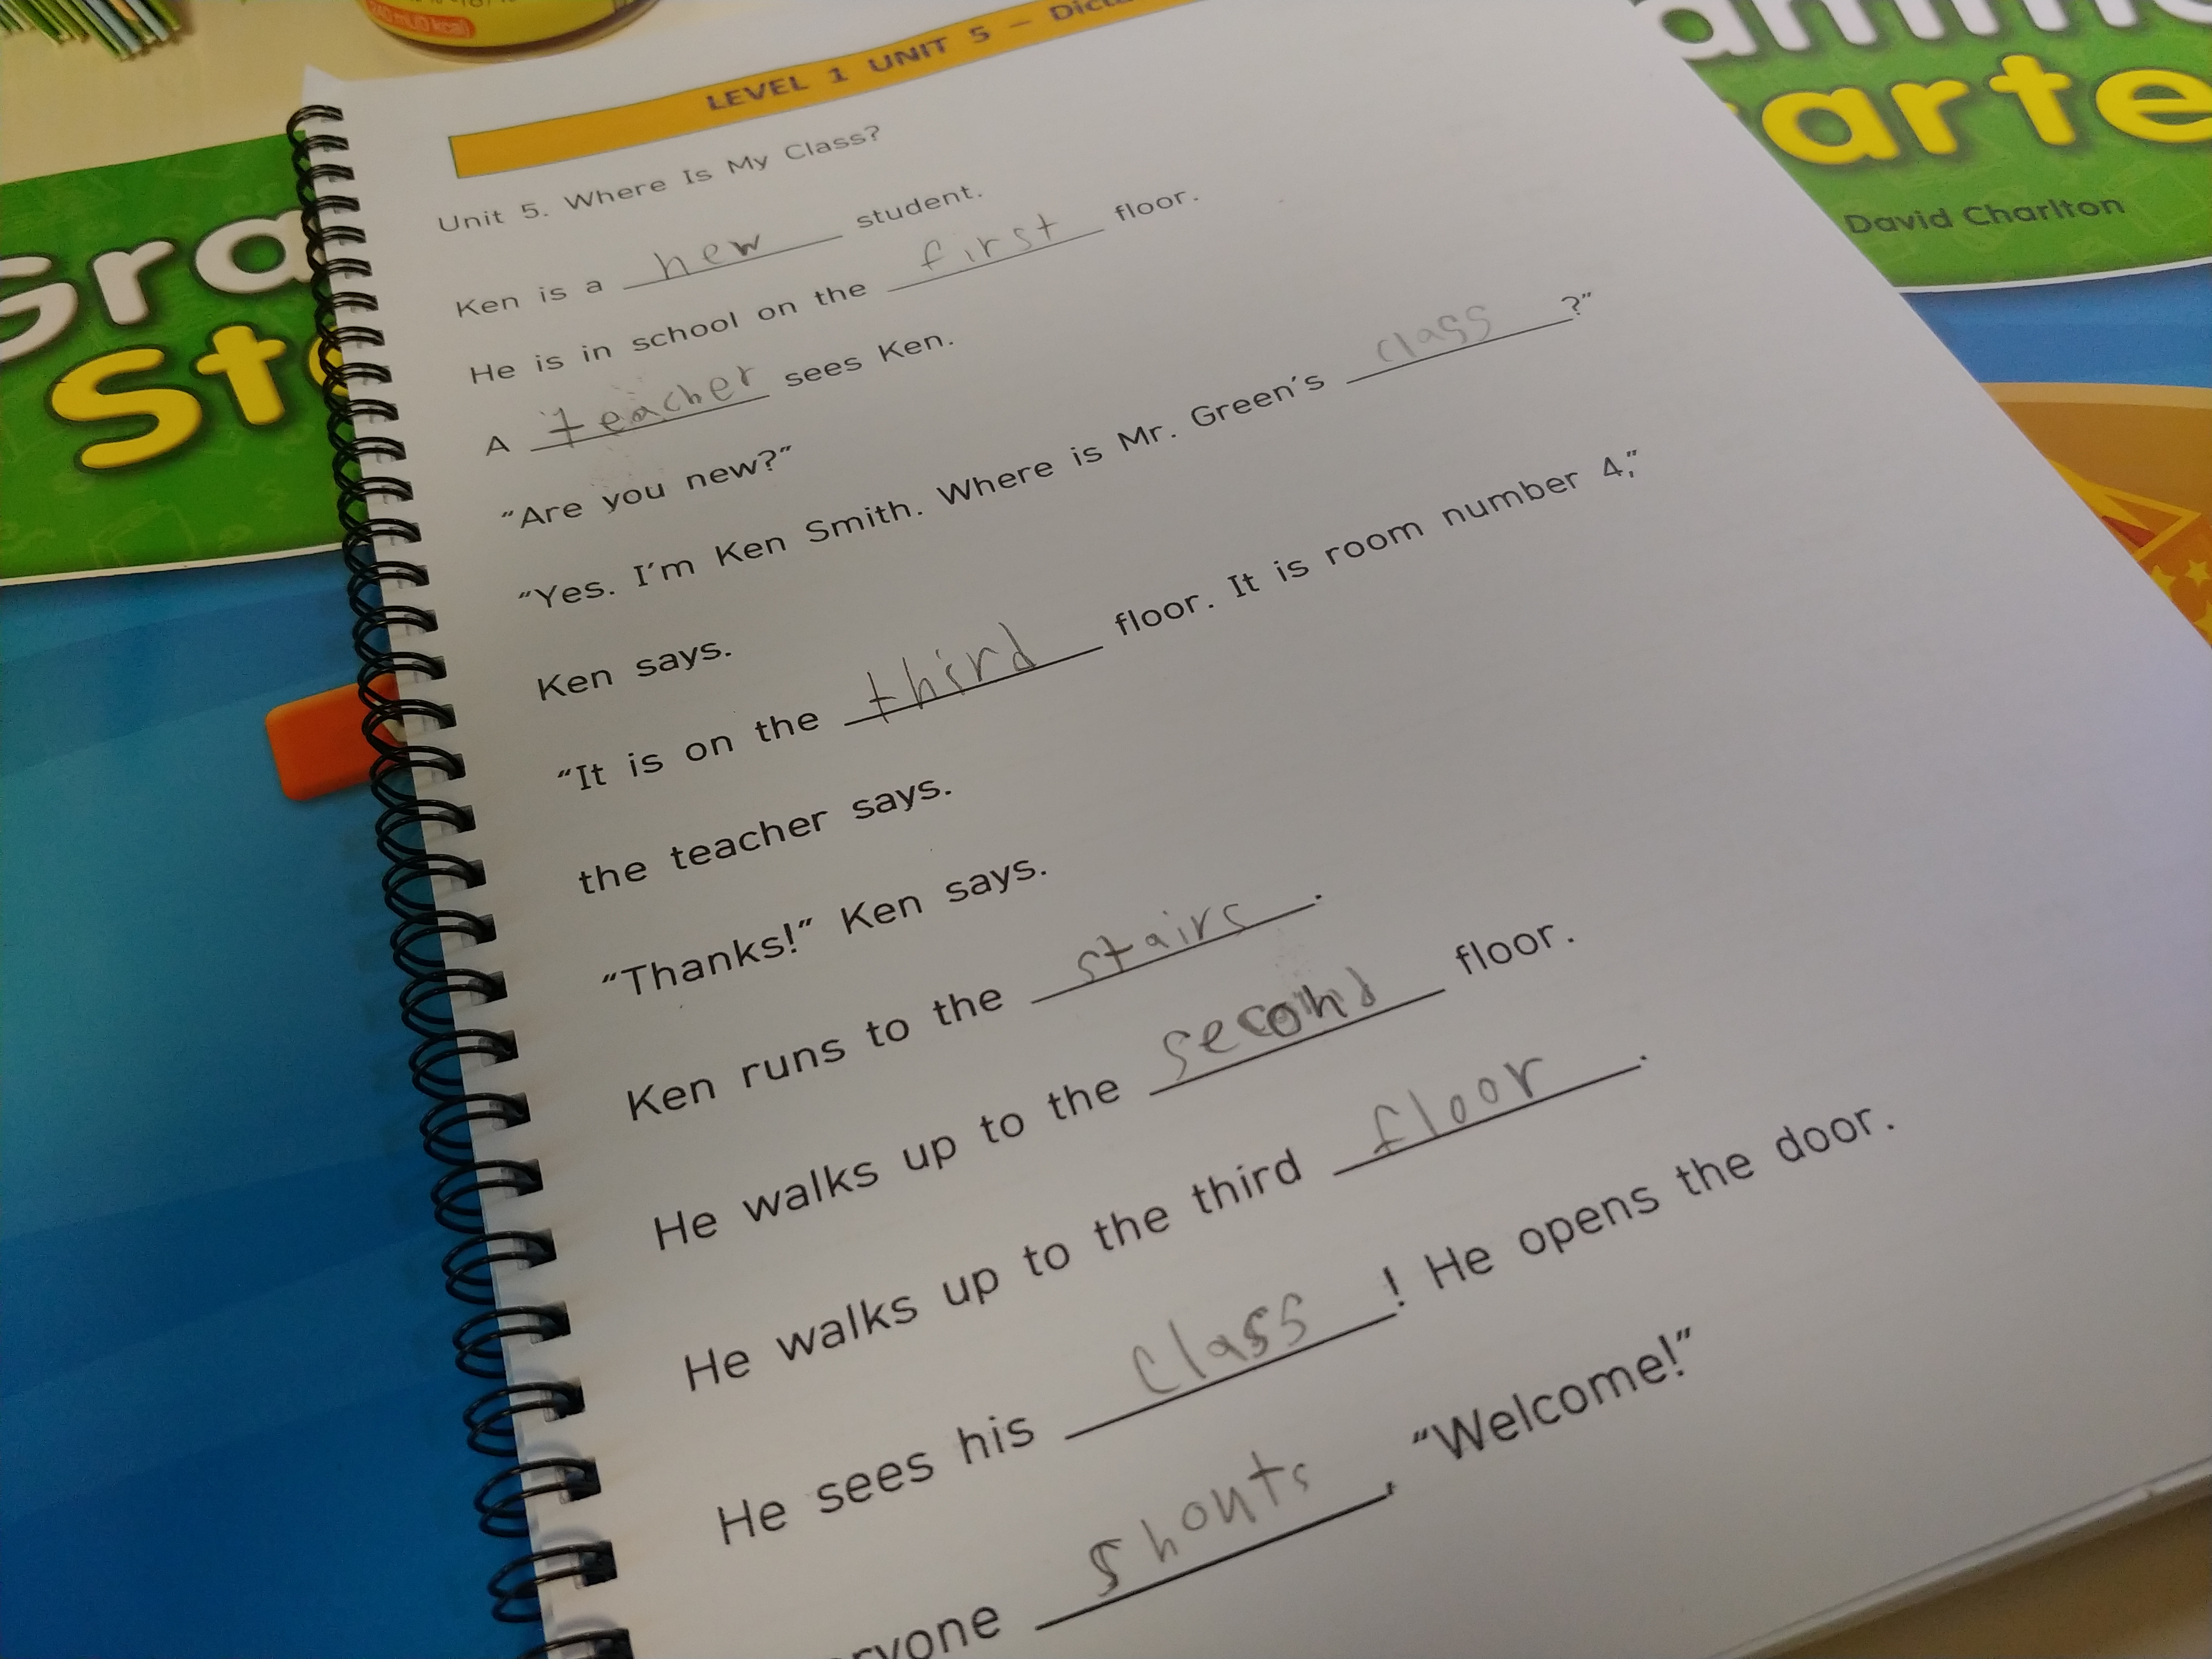 240 mL(0 kcal)
LEVEL 1 UNIT 5 –
Unit 5. Where Is My Class?
Ken is a new student.
He is in school on the first floor.
A teacher sees Ken.
"Are you new?"
"Yes. I'm Ken Smith. Where is Mr. Green's class ?"
Ken says.
"It is on the third floor. It is room number 4,"
the teacher says.
"Thanks!" Ken says.
Ken runs to the stairs.
He walks up to the second floor.
He walks up to the third floor.
He sees his class! He opens the door.
ryone shouts, "Welcome!"
Gra
St
arte
David Charlton